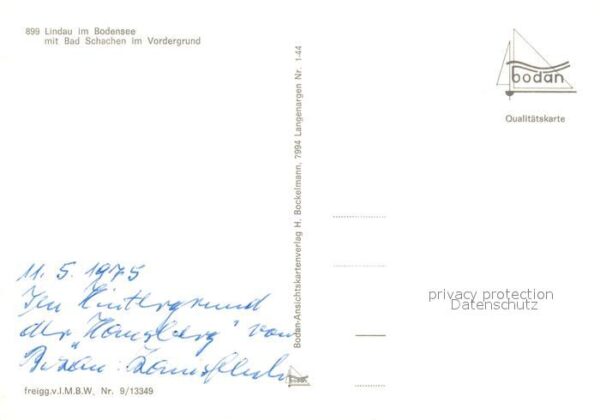 899 Lindau im Bodensee
mit Bad Schachen im Vordergrund
bodan
Qualitätskarte
Bodan-Ansichtskartenverlag H. Bockelmann, 7994 Langenargen Nr. 1-44
11. 5. 1975
Im Hintergrund
der "Hausberg" von
privacy protection
Datenschutz
bodan
freigg.v.I.M.B.W, Nr. 9/13349